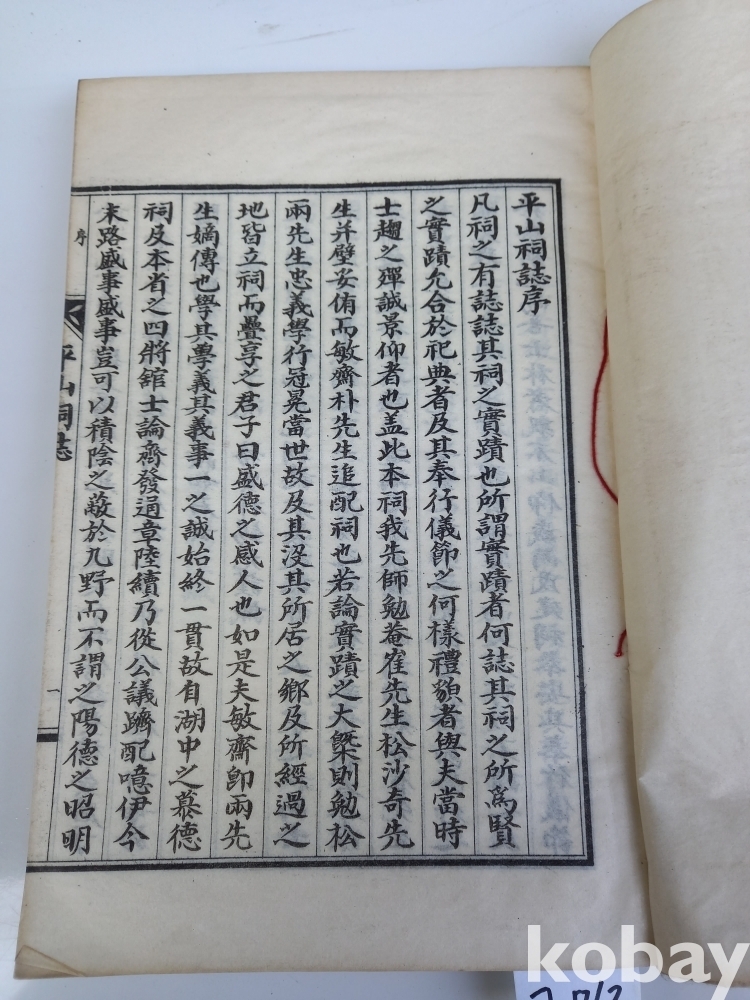 平山祠誌序
凡祠之有誌誌其祠之實蹟也所謂實蹟者何誌其祠之所爲賢
之實蹟允合於祀典者及其奉行儀節之何樣禮貌者與夫當時
士趨之殫誠景仰者也盖此本祠我先師勉菴崔先生松沙奇先
生幷壁妥侑而敏齋朴先生追配祠也若論實蹟之大槩則勉松
兩先生忠義學行冠冕當世故及其沒其所居之鄉及所經過之
地皆立祠而疊享之君子曰盛德之感人也如是夫敏齋卽兩先
生嫡傳也學其學義其義事一之誠始終一貫故自湖中之慕德
祠及本省之四將舘士論齊發通章陸續乃從公議躋配噫伊今
末路盛事盛事豈可以積陰之蔽於九野而不謂之陽德之昭明
序
平山祠誌
一
kobay